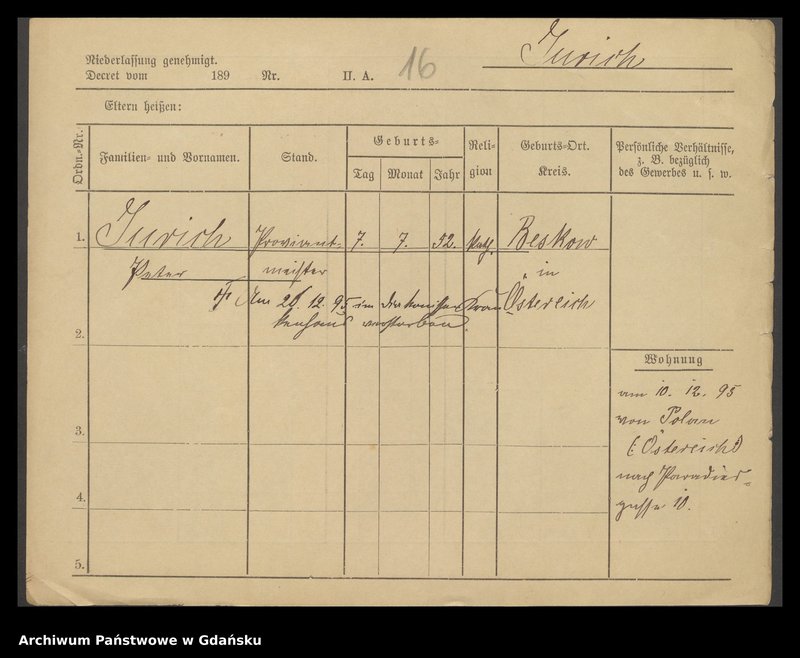 Jurich
Niederlassung genehmigt.
Decret vom 189 Nr. II. A. 16
Eltern heißen:
Ordn.-Nr.
Familien- und Vornamen.
Stand.
Geburts-
Tag Monat Jahr
Reli-
gion
Geburts-Ort.
Kreis.
Persönliche Verhältnisse,
z. B. bezüglich
des Gewerbes u. s. w.
1. Jurich Proviant- 7. 7. 52. kath. Beskow
Peter meister in
Am 26. 12. 95 im diakonissen Kran Östereich
kenhaus verstorben.
2.
Wohnung
am 10. 12. 95
von Polan
(: Östereich :)
nach Paradies-
gasse 10.
3.
4.
5.
Archiwum Państwowe w Gdańsku